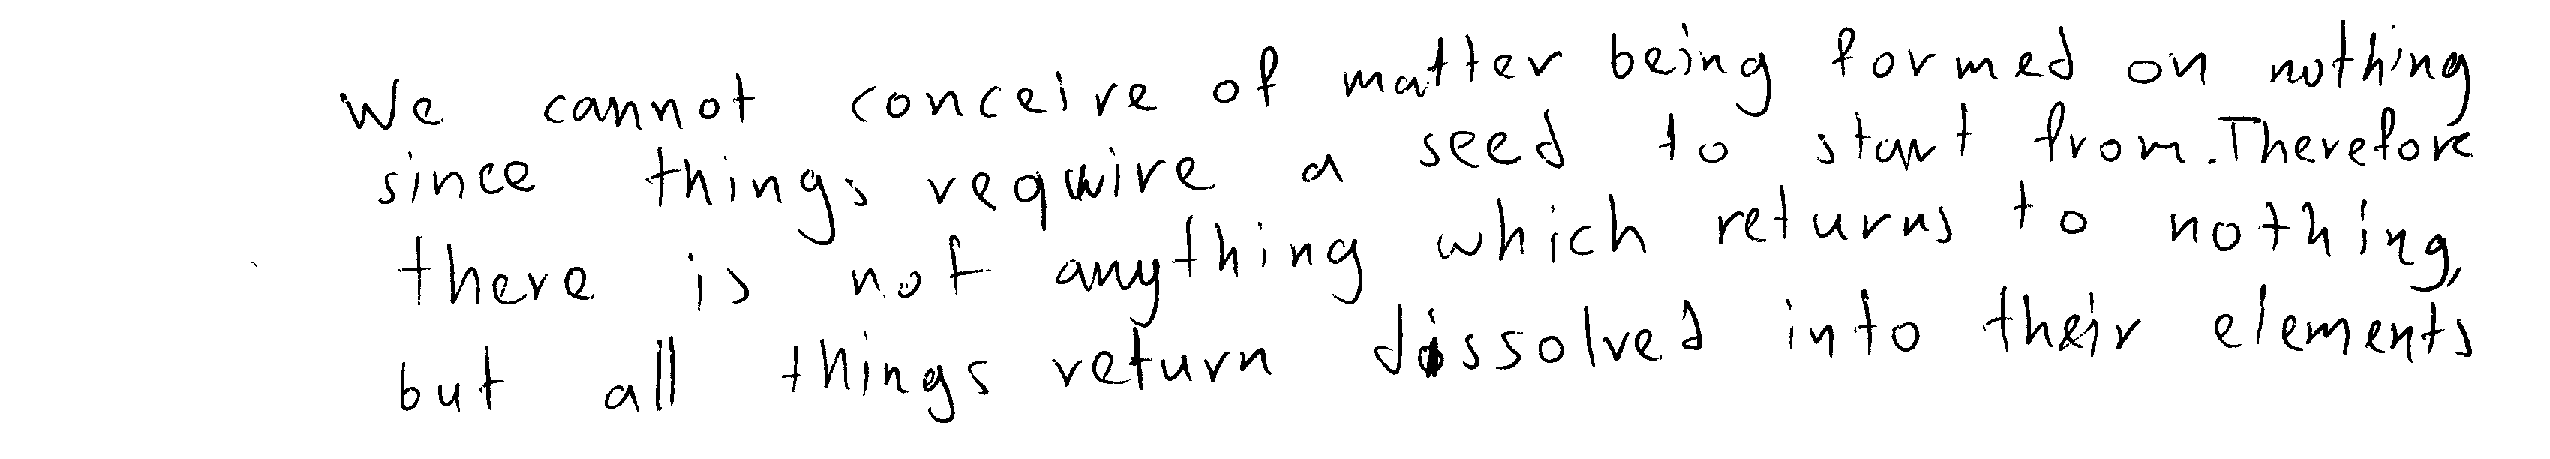 We cannot conceive of matter being formed on nothing
since things require a seed to start from. Therefore
there is not anything which returns to nothing,
but all things return dissolved into their elements